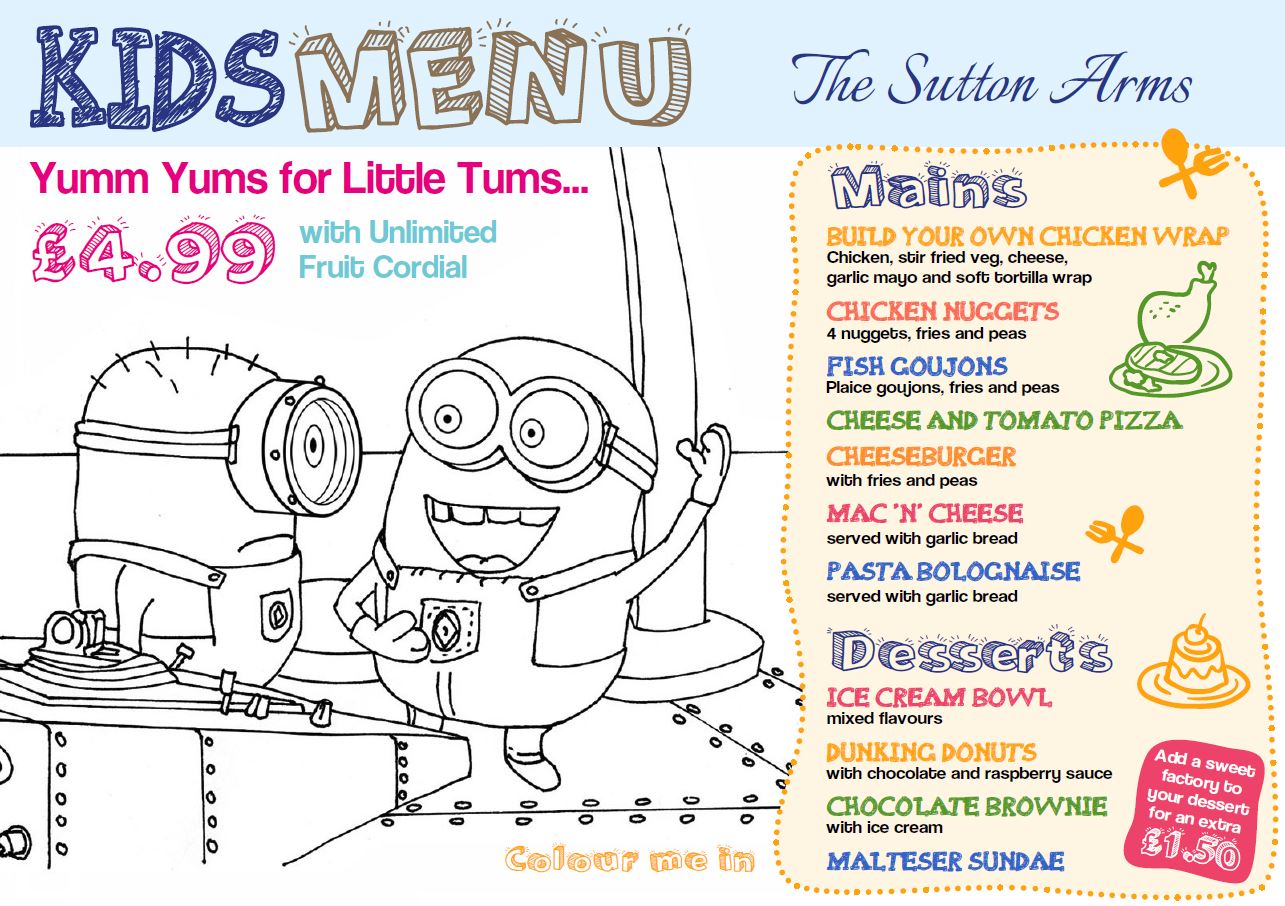 KIDS MENU
The Sutton Arms
Yumm Yums for Little Tums...
£4.99
with Unlimited
Fruit Cordial
Colour me in
Mains
BUILD YOUR OWN CHICKEN WRAP
Chicken, stir fried veg, cheese,
garlic mayo and soft tortilla wrap
CHICKEN NUGGETS
4 nuggets, fries and peas
FISH GOUJONS
Plaice goujons, fries and peas
CHEESE AND TOMATO PIZZA
CHEESEBURGER
with fries and peas
MAC 'N' CHEESE
served with garlic bread
PASTA BOLOGNAISE
served with garlic bread
Desserts
ICE CREAM BOWL
mixed flavours
DUNKING DONUTS
with chocolate and raspberry sauce
CHOCOLATE BROWNIE
with ice cream
MALTESER SUNDAE
Add a sweet
factory to
your dessert
for an extra
£1.50